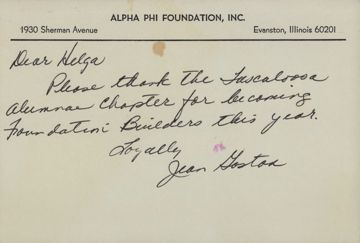 ALPHA PHI FOUNDATION, INC.
1930 Sherman Avenue Evanston, Illinois 60201
Dear Helga
Please thank the Tuscaloosa
alumnae chapter for becoming
Foundation Builders this year.
Loyally
Jean